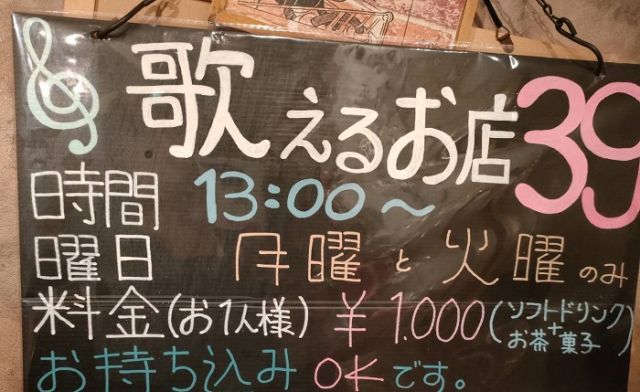 歌えるお店39
時間 13:00～
曜日 月曜と火曜のみ
料金(お1人様) ¥1.000(ソフトドリンク+お茶菓子)
お持ち込みOKです。